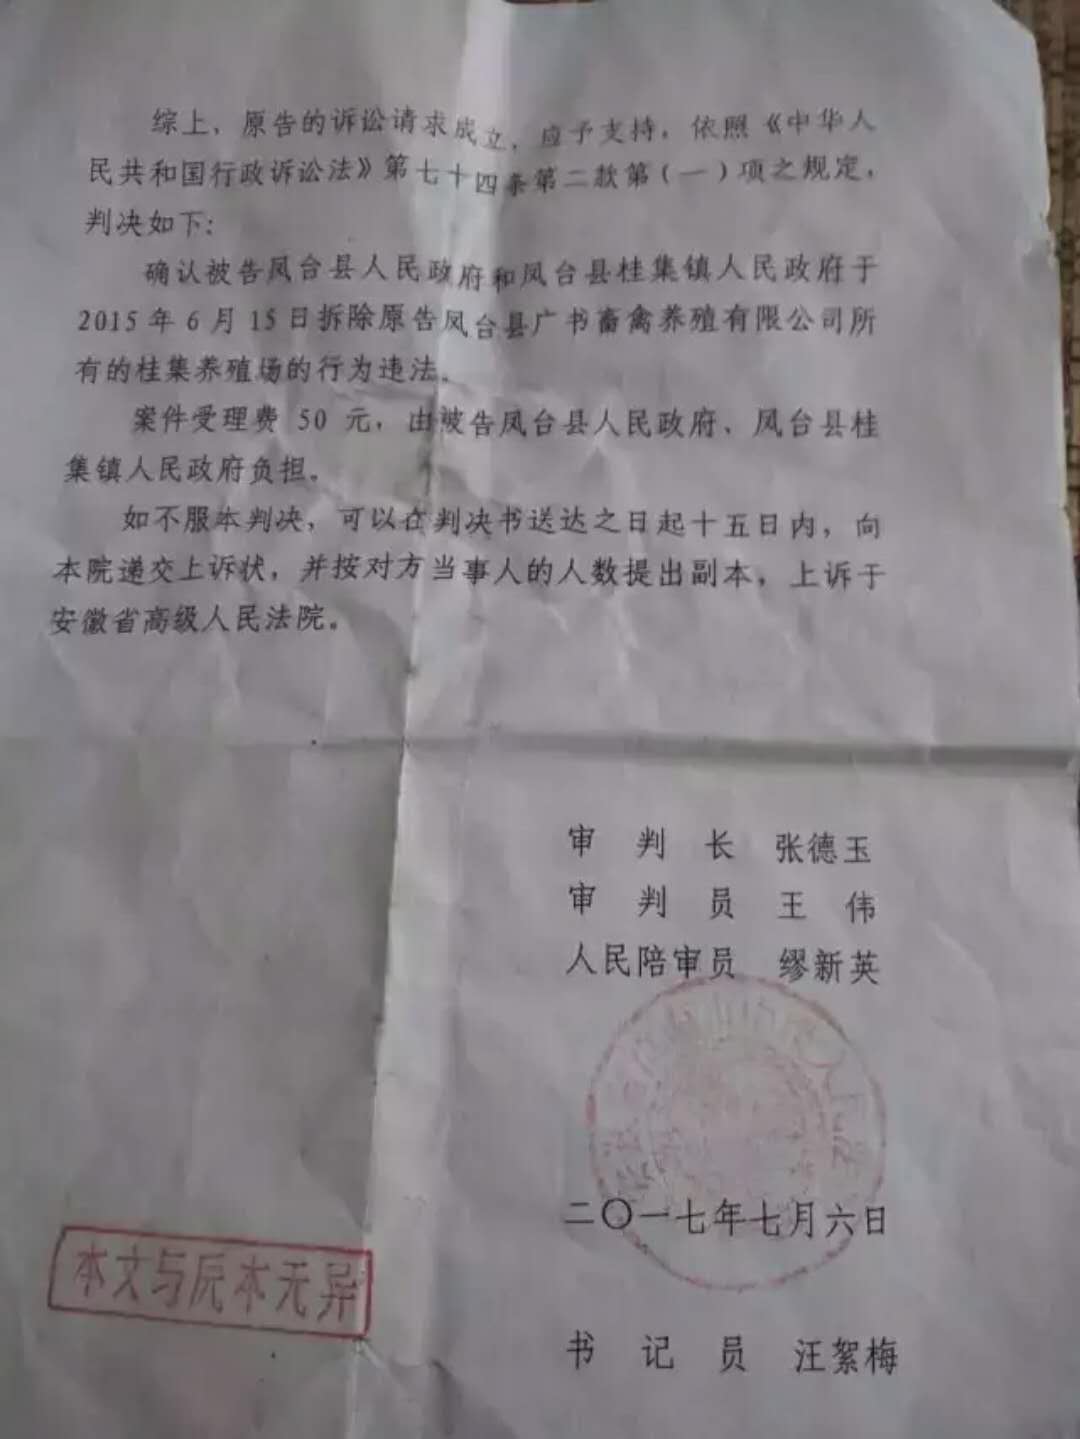 综上，原告的诉讼请求成立，应予支持，依照《中华人
民共和国行政诉讼法》第七十四条第二款第(一)项之规定，
判决如下：
确认被告凤台县人民政府和凤台县桂集镇人民政府于
2015年6月15日拆除原告凤台县广书畜禽养殖有限公司所
有的桂集养殖场的行为违法。
案件受理费 50 元，由被告凤台县人民政府、凤台县桂
集镇人民政府负担。
如不服本判决，可以在判决书送达之日起十五日内，向
本院递交上诉状，并按对方当事人的人数提出副本，上诉于
安徽省高级人民法院。
审 判 长 张德玉
审 判 员 王 伟
人民陪审员 缪新英
二〇一七年七月六日
本文与原本无异
书 记 员 汪絮梅